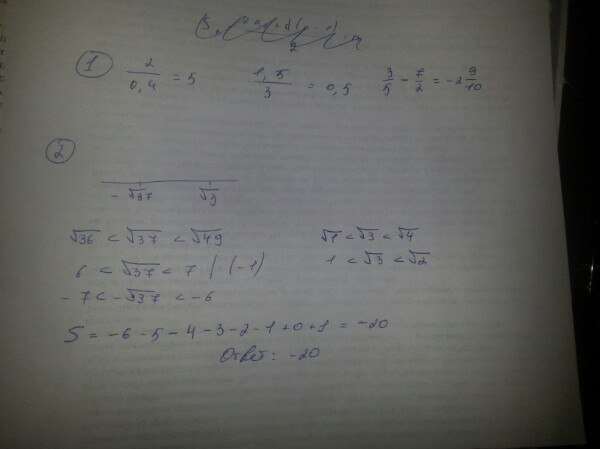 1
2/0,4 = 5   1,5/3 = 0,5   3/5 - 7/2 = -2 9/10
2
-√37   √3
√36 < √37 < √49   √1 < √3 < √4
6 < √37 < 7 | · (-1)   1 < √3 < √2
-7 < -√37 < -6
S = -6 - 5 - 4 - 3 - 2 - 1 + 0 + 1 = -20
Ответ: -20